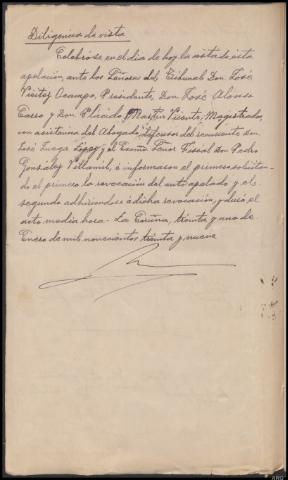 Diligencia de vista
Celebrose en el dia de hoy la vista de esta
apelación, ante los Señores del Tribunal Don José
Vieitez Ocampo, Presidente, Don José Alonso
Carro y Don Plácido Martin Vicente, Magistrados,
con asistencia del Abogado defensor del recurrente Don
José Luaga López y el Excmo Señor Fiscal Don Pedro
González Villamil, é informaron el primero solicitan-
do el primero la revocación del auto apelado y el
segundo adhiriendose á dicha revocación, y duró el
acto media hora. La Coruña, treinta y uno de
Enero de mil novecientos treinta y nueve